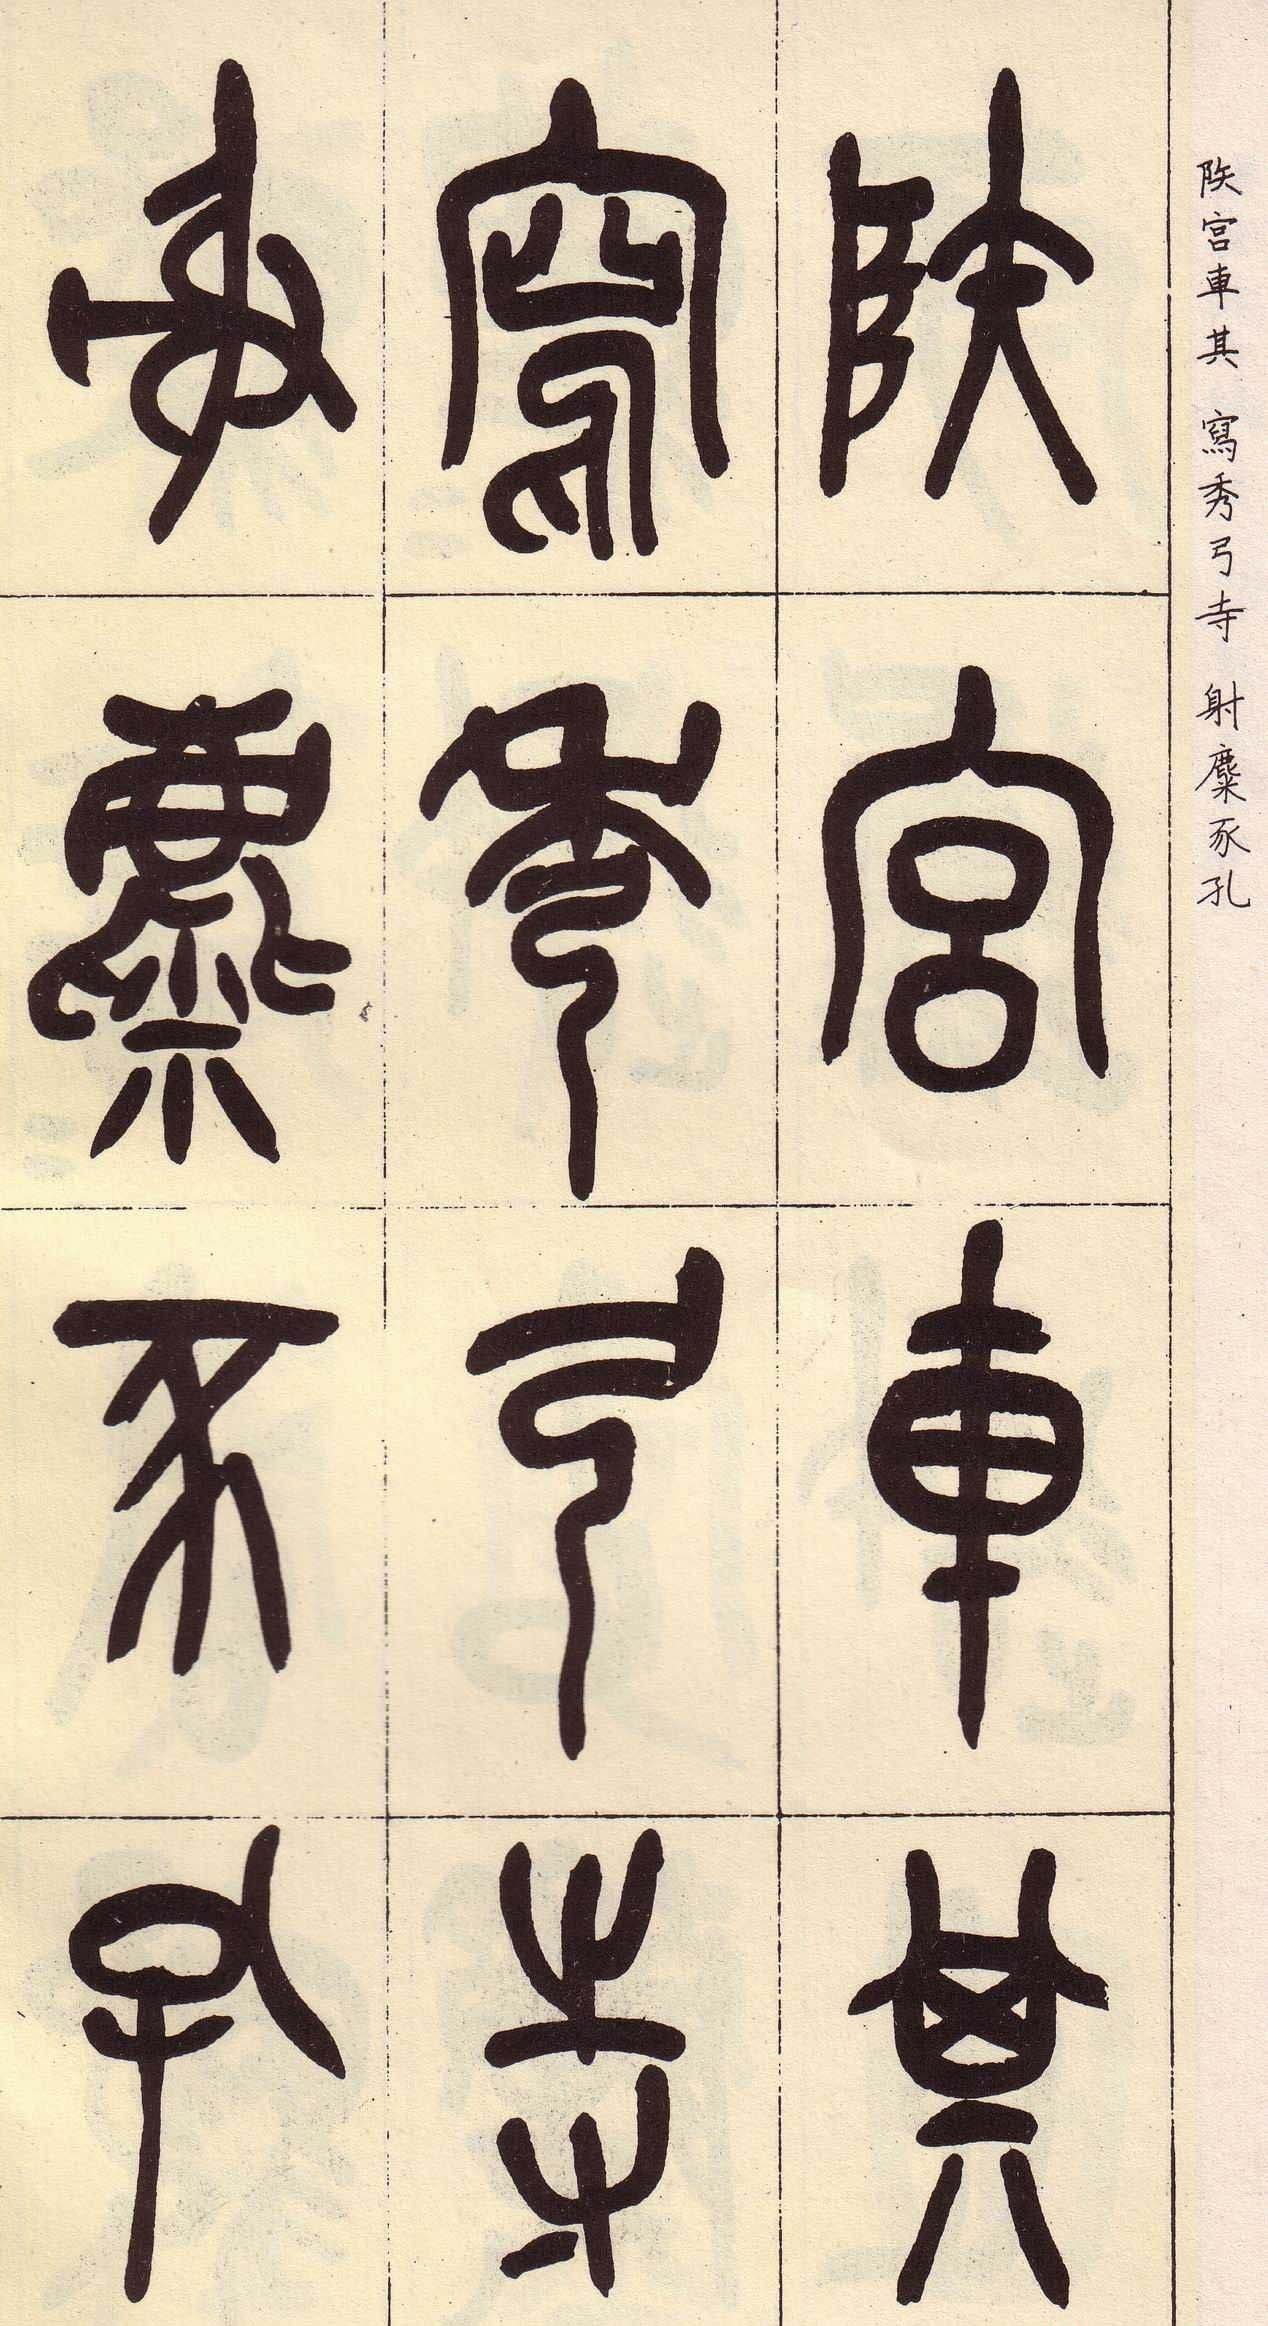 陝宮車其 寫秀弓寺 射麋豕孔
陝宮車其
寫秀弓寺
射麋豕孔